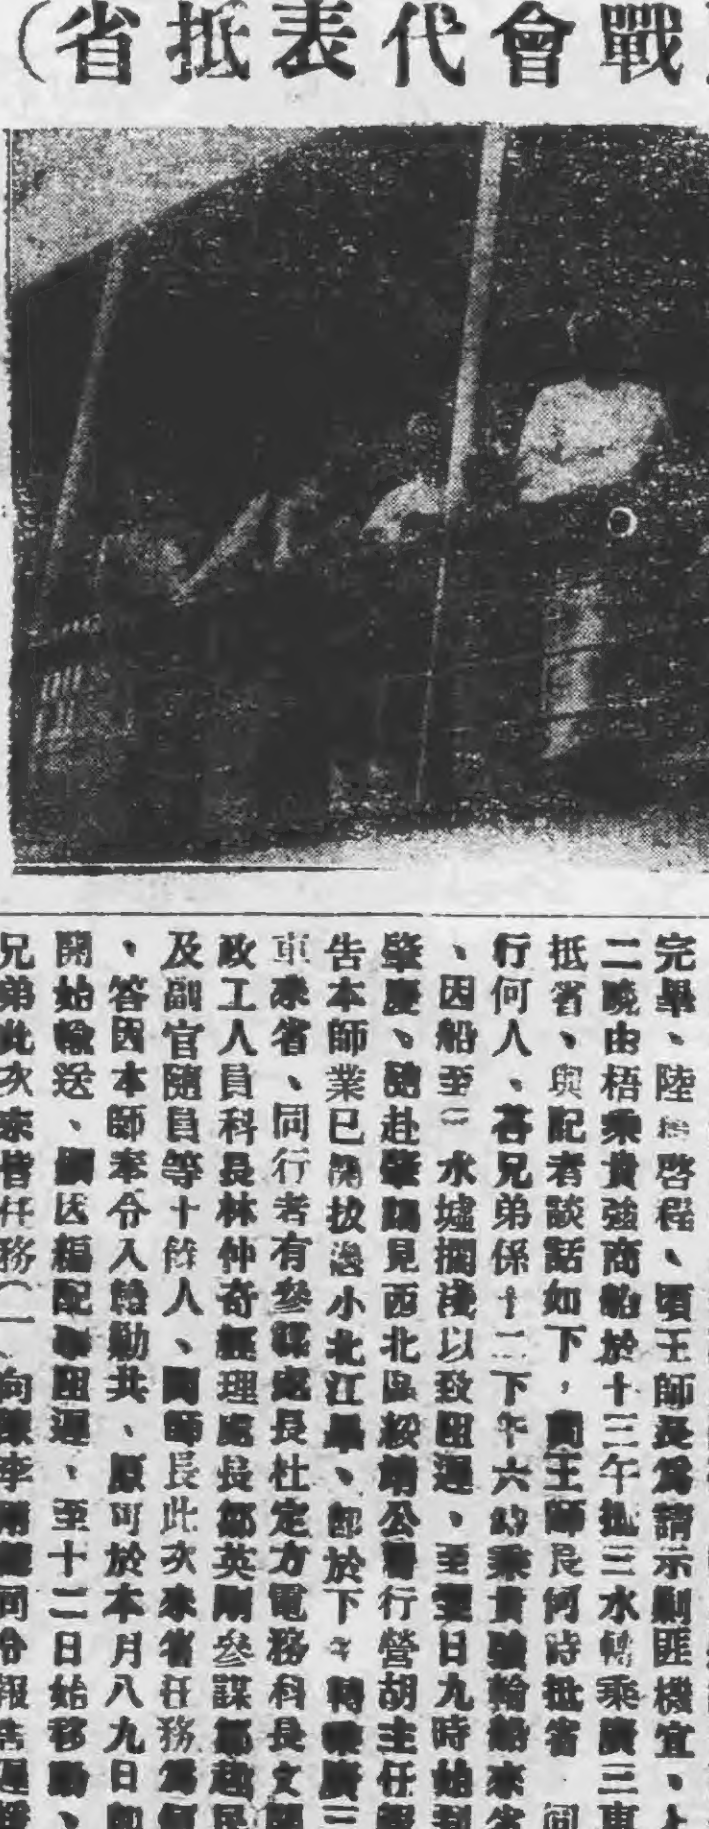 戰會代表抵省（
完畢、陸續啓程、頃王師長爲請示剿匪機宜、上
二晚由梧乘貴強商船於十三午抵三水轉乘廣三車
抵省、與記者談話如下，問王師長何時抵省 同
行何人、答兄弟係十二下午六時乘貴強輪船來省
、因船至三水墟擱淺以致阻遲、至翌日九時始到
肇慶、隨赴肇謁見西北區綏靖公署行營胡主任報
告本師業已開拔過小北江畢、卽於下午轉乘廣三
車來省、同行者有參謀處長杜定方電務科長文
政工人員科長林仲奇經理處長鄒英剛參謀
及副官隨員等十餘人、問師長此次來省任務爲何
、答因本師奉令入贛勦共、原可於本月八九日卽
開始輸送、續因編配船阻遲、至十二日始移動、
兄弟此次來省任務（一、向陳李 總司令報告